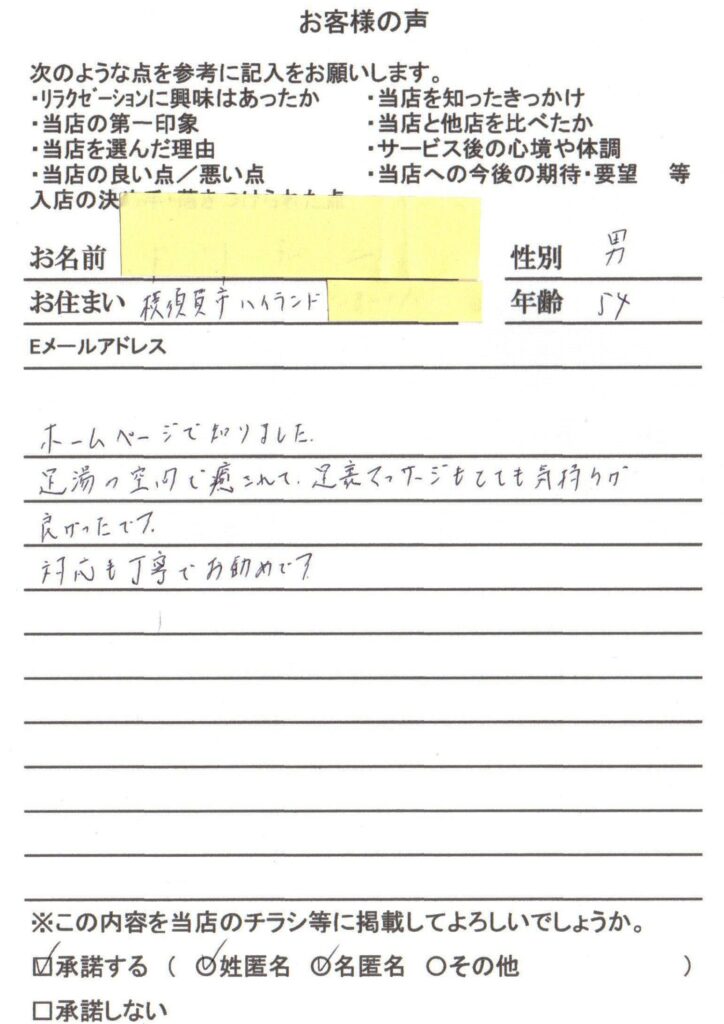 お客様の声
次のような点を参考に記入をお願いします。
・リラクゼーションに興味はあったか ・当店を知ったきっかけ
・当店の第一印象 ・当店と他店を比べたか
・当店を選んだ理由 ・サービス後の心境や体調
・当店の良い点／悪い点 ・当店への今後の期待・要望 等
入店の決
お名前 性別 男
お住まい 横須賀市ハイランド 年齢 54
Eメールアドレス
ホームページで知りました。
足湯の空間で癒されて、足裏マッサージもとても気持ちが
良かったです。
対応も丁寧でお勧めです
※この内容を当店のチラシ等に掲載してよろしいでしょうか。
☑承諾する （ ○姓匿名 ○名匿名 ○その他 ）
□承諾しない